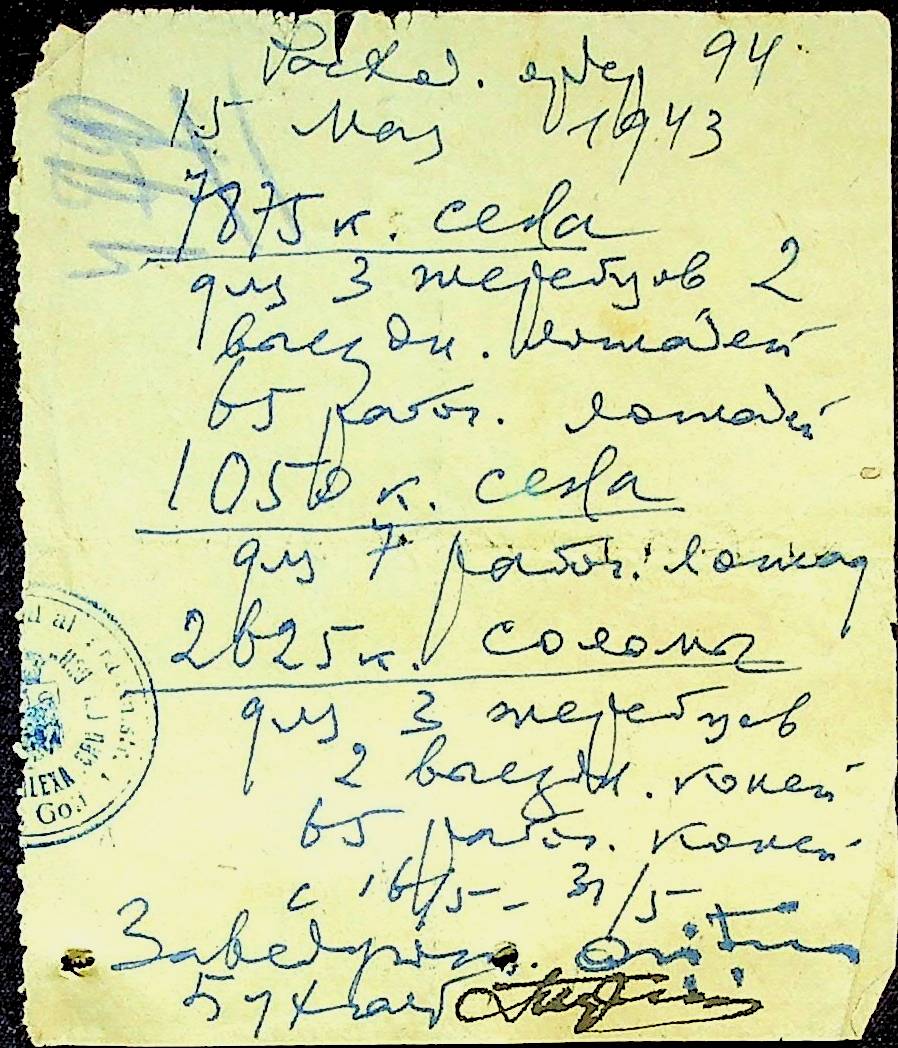 Расход. ордер 94
15 Мая 1943
7875 к. сена
для 3 жеребцов 2
выездн. лошадей
65 рабоч. лошадей
1050 к. сена
для 7 рабоч. лошад
2625 к. соломы
для 3 жеребцов
2 выездн. коней
65 рабоч. коней
с 16/5 - 31/5
Goa